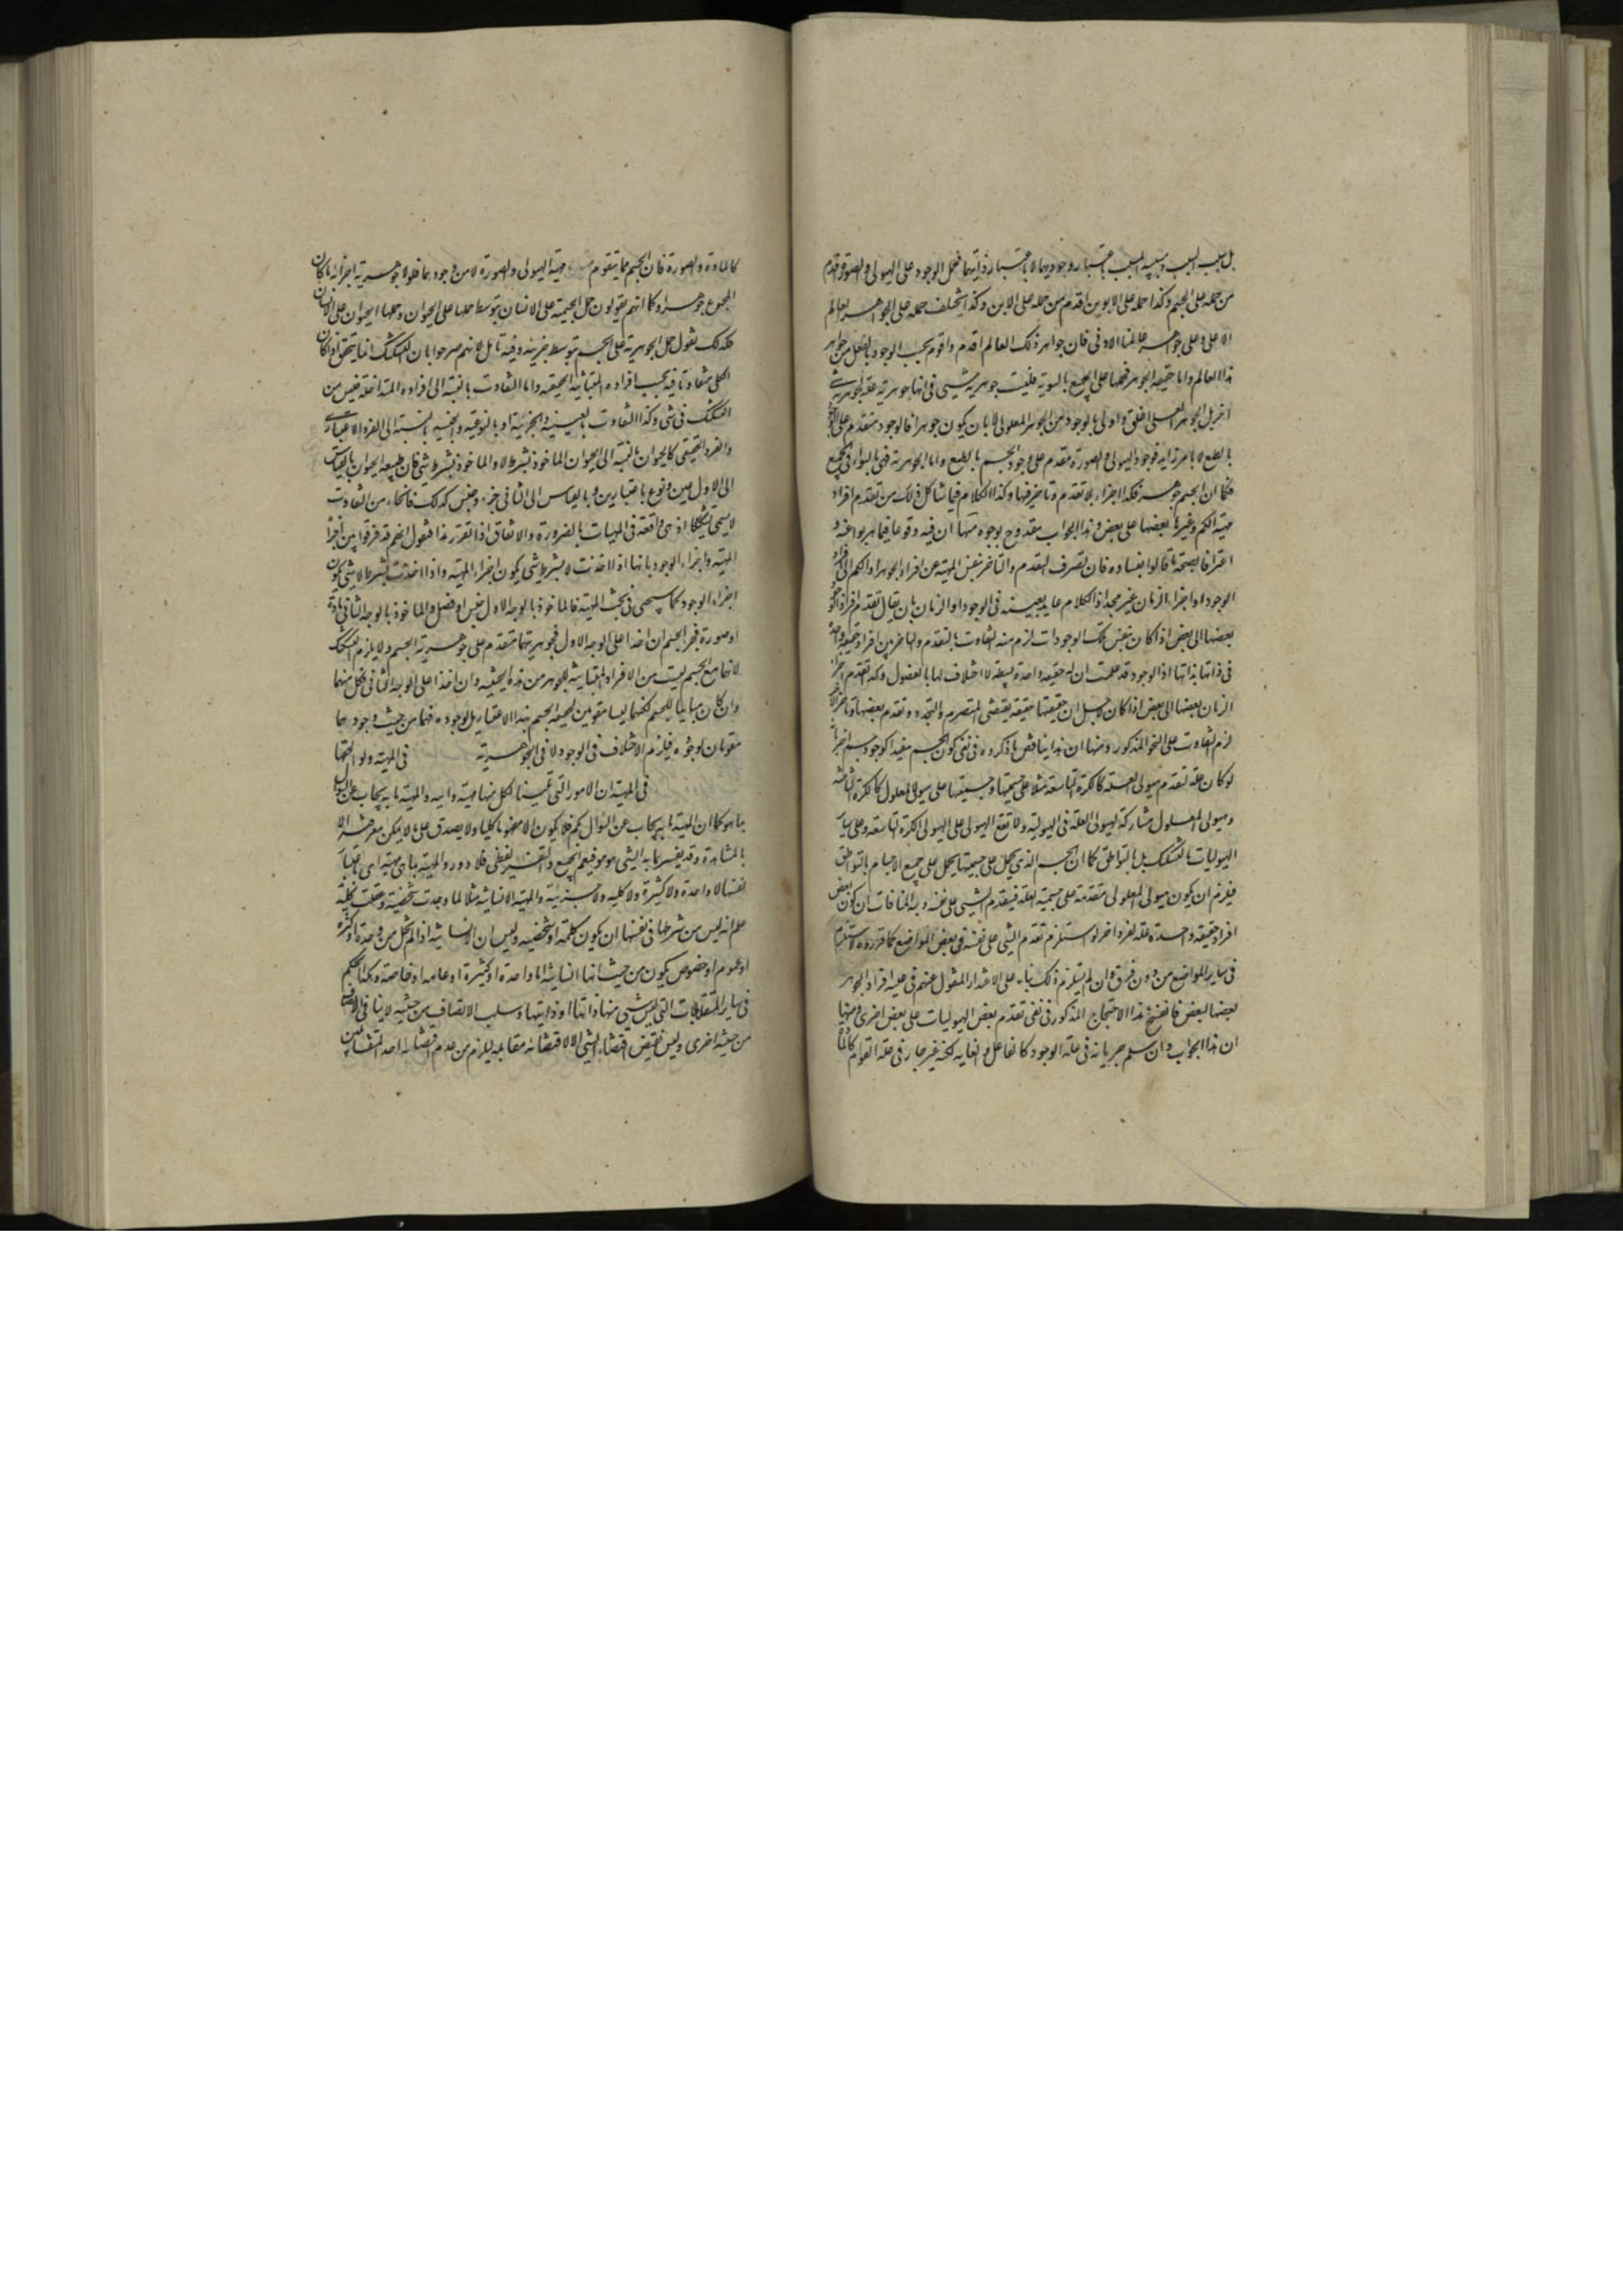 بل سبب السبب وسببية السبب باعتبار وجوديهما لا باعتبار ذاتيهما فحمل الوجود على الهيولى والصورة اقدم
من حمله على الجسم وكذا حمله على الابوين اقدم من حمله على الابن وكذا يختلف حمله على الجواهر العالم
الاعلى وعلى جواهر عالمنا الادنى فان جواهر ذلك العالم اقدم واقوم بحسب الوجود بالفعل من جواهر
هذا العالم واما حقيقة الجوهر فحملها على الجميع بالسوية فليست جوهرية شيء في انها جوهرية علة لجوهرية شيء
اخر بل الجوهر العلى اخلق واولى بالوجود من الجوهر المعلولى لا بان يكون جوهرا فالوجود متقدم على الوجود
بالطبع لا بامر زايد فوجود الهيولى والصورة مقدم على وجود الجسم بالطبع واما الجوهرية فهي بالسواء في الجميع
فكما ان الجسم جوهر فكذا اجزاءه بلا تقدم وتاخر فيها وكذا الكلام فيما شاكل ذلك من تقدم افراد
مهية الكم وغيرها بعضها على بعض وهذا الجواب مقدوح بوجوه منها ان فيه وقوعا فيما هربوا عنه و
اعترافا بصحة ما قالوا بفساده فان تصرف التقدم والتاخر بنفس المهية عن افراد الجوهر او الكم الى افراد
الوجود او اجزاء الزمان غير مجد اذ الكلام عايد بعينه في الوجود او الزمان بان يقال تقدم افراد الوجود
بعضها الى بعض اذا كان بنفس تلك الوجودات لزم منه التفاوت بالتقدم والتاخر بين افراد حقيقة واحدة
في ذاتها بذاتها اذ الوجود قد علمت ان له حقيقة واحدة بسيطة لا اختلاف لها بالفصول وكذا تقدم اجزاء
الزمان بعضها الى بعض اذا كان لاجل ان حقيقتها حقيقة يقتضى التصرم والتجدد وتقدم بعضها وتاخر الاخر
لزم التفاوت على النحو المذكور ومنها ان هذا يناقض ما ذكروه في نفى كون الجسم مفيدا لوجود جسم اخر بانه
لو كان علة لتقدم هيولى العلة كالكرة التاسعة مثلا على جسميتها وجسميتها على هيولى المعلول كالكرة الثامنة
وهيولى المعلول مشاركة لهيولى العلة في الهيولية ولا تقع الهيولى على الهيولى الكرة التاسعة وعلى ساير
الهيوليات بالتشكيك بل بالتواطى كما ان الجسم الذي يحمل على جسميتها يحمل على جميع الاجسام بالتواطى
فيلزم ان يكون هيولى المعلولى متقدمة على جسمية العلة فيتقدم الشيء على نفسه وبه المنافات ان كون بعض
افراد حقيقة واحدة علة لفرد اخر لو استلزم تقدم الشيء على نفسه في بعض المواضع كما قرروه لاستلزم
في ساير المواضع من دون فرق وان لم يستلزم ذلك بناء على الاعتذار المنقول عنهم في علية افراد الجوهر
بعضها لبعض فانفسخ هذا الاحتجاج المذكور في نفى تقدم بعض الهيوليات على بعض اخرى ومنها
ان هذا الجواب وان سلم جريانه في علة الوجود كالفاعل والغاية لكنه غير جار في علة القوام
كالمادة والصورة فان الجسم مما يتقوم مهية الهيولى والصورة لا من وجودهما فلولا جوهرية اجزائه ما كان
المجموع جوهرا وكما انهم يقولون حمل الجسمية على الانسان بتوسط حملها على الحيوان وحملها الحيوان على الانسان
فكذلك نقول حمل الجوهرية على الجسم بتوسط جزئيه وفيه تامل لانهم صرحوا بان التشكيك انما يتحقق اذا كان
الكلى متفاوتا فيه بحسب افراده المتباينة الحقيقة واما التفاوت بالنسبة الى افراده المتداخلة فليس من
التشكيك في شيء وكذا التفاوت بالعينية والجزئية او بالنوعية والجنسية بالنسبة الى الفرد الاعتبارى
والفرد الحقيقى كالحيوان بالنسبة الى الحيوان الماخوذ بشرط لا والماخوذ بشرط شيء فان طبيعة الحيوان بالقياس
الى الاول عين ونوع باعتبارين وبالقياس الى الثانى جزء وجنس كذلك فانحاء من التفاوت
لا يسمى تشكيكا اذ هي واقعة في المهيات بالضرورة والاتفاق اذا تقرر هذا فنقول انهم قد فرقوا بين اجزاء
المهية واجزاء الوجود بانها اذا اخذت لا بشرط شيء يكون اجزاء المهية واذا اخذت بشرط لا شيء يكون
اجزاء الوجود كما سيجيء في بحث المهية فالماخوذ بالوجه الاول جنس او فصل والماخوذ بالوجه الثانى مادة
او صورة فجزء الجسم ان اخذا على الوجه الاول فجوهريتهما متقدم على جوهرية الجسم ولا يلزم التشكيك
لانهما مع الجسم ليست من الافراد المتباينة للجوهر من هذه الحيثية وان اخذا على الوجه الثانى فكل منهما
وان كان مباينا للجسم لكنهما ليسا مقومين لحقيقة الجسم بهذا الاعتبار بل لوجوده فهما من حيث وجودهما
مقومان لوجوده فيلزم الاختلاف في الوجود لا في الجوهرية في المهية ولواحقها
في المهية ان الامور التي تلينا لكل منها مهية وانية والمهية ما به يجاب عن السؤال
بما هو كما ان الكمية ما به يجاب عن السؤال بكم فلا يكون الا مفهوما كليا ولا يصدق على ما لا يمكن معرفته الا
بالمشاهدة وقد يفسر بما به الشيء هو هو فيعم الجميع والتفسير لفظى فلا دور والمهية بما هي مهية اي باعتبار
نفسها لا واحدة ولا كثيرة ولا كلية ولا جزئية والمهية الانسانية مثلا لما وجدت شخصية وعقلت كلية
علم انه ليس من شرطها في نفسها ان يكون كلية او شخصية وليس ان الانسانية اذا لم تخل من وحدة او كثرة
او عموم او خصوص يكون من حيث انها انسانية اما واحدة او كثيرة او عامة او خاصة وهكذا الحكم
في ساير المتقابلات التي ليس شيء منها ذاتها او ذاتيتها وسلب الاتصاف من حيثية لا ينافي الاتصاف
من حيثية اخرى وليس نقيض اقتضاء الشيء الا لا اقتضائه لا اقتضاء مقابله ليلزم من عدم اقتضائه احد المتقابلين